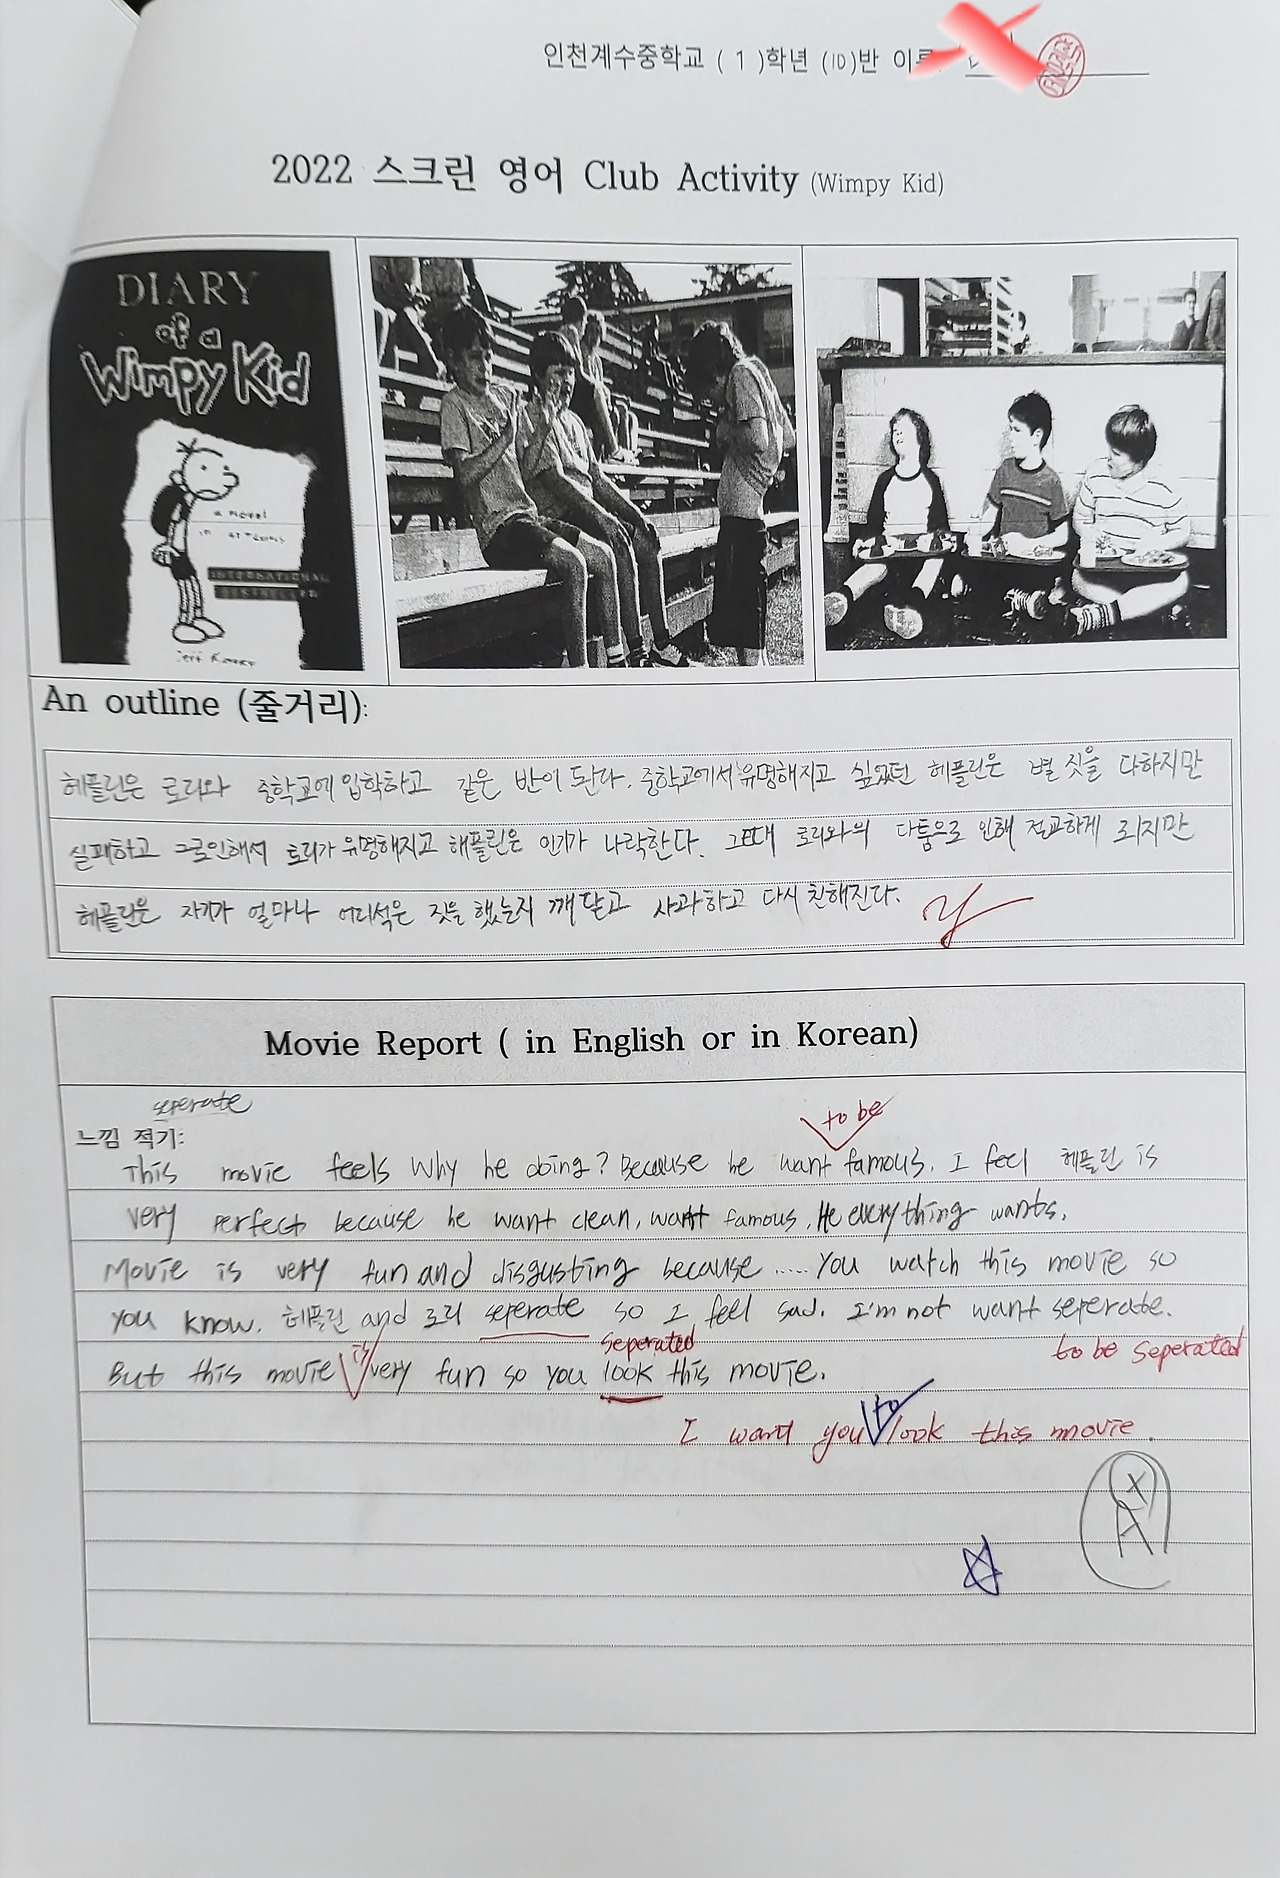 인천계수중학교 ( 1 )학년 (10)반
2022 스크린 영어 Club Activity (Wimpy Kid)
DIARY
of a
Wimpy Kid
a novel
in cartoons
INTERNATIONAL
BESTSELLER
Jeff Kinney
An outline (줄거리):
헤플린은 로리와 중학교에 입학하고 같은 반이 된다. 중학교에서 유명해지고 싶었던 헤플린은 별 짓을 다하지만
실패하고 그로인해서 로리가 유명해지고 헤플린은 인기가 나락한다. 그런데 로리와의 다툼으로 인해 절교하게 되지만
헤플린은 자기가 얼마나 어리석은 짓을 했는지 깨닫고 사과하고 다시 친해진다.
Movie Report ( in English or in Korean)
seperate
느낌 적기:
to be
This movie feels Why he doing? Because he want famous. I feel 헤플린 is
very perfect because he want clean, want famous. He everything wants.
Movie is very fun and disgusting because ..... You watch this movie so
you know. 헤플린 and 로리 seperate so I feel sad. I'm not want seperate.
is seperated to be seperated
But this movie very fun so you look this movie.
to
I want you look this movie.
A+